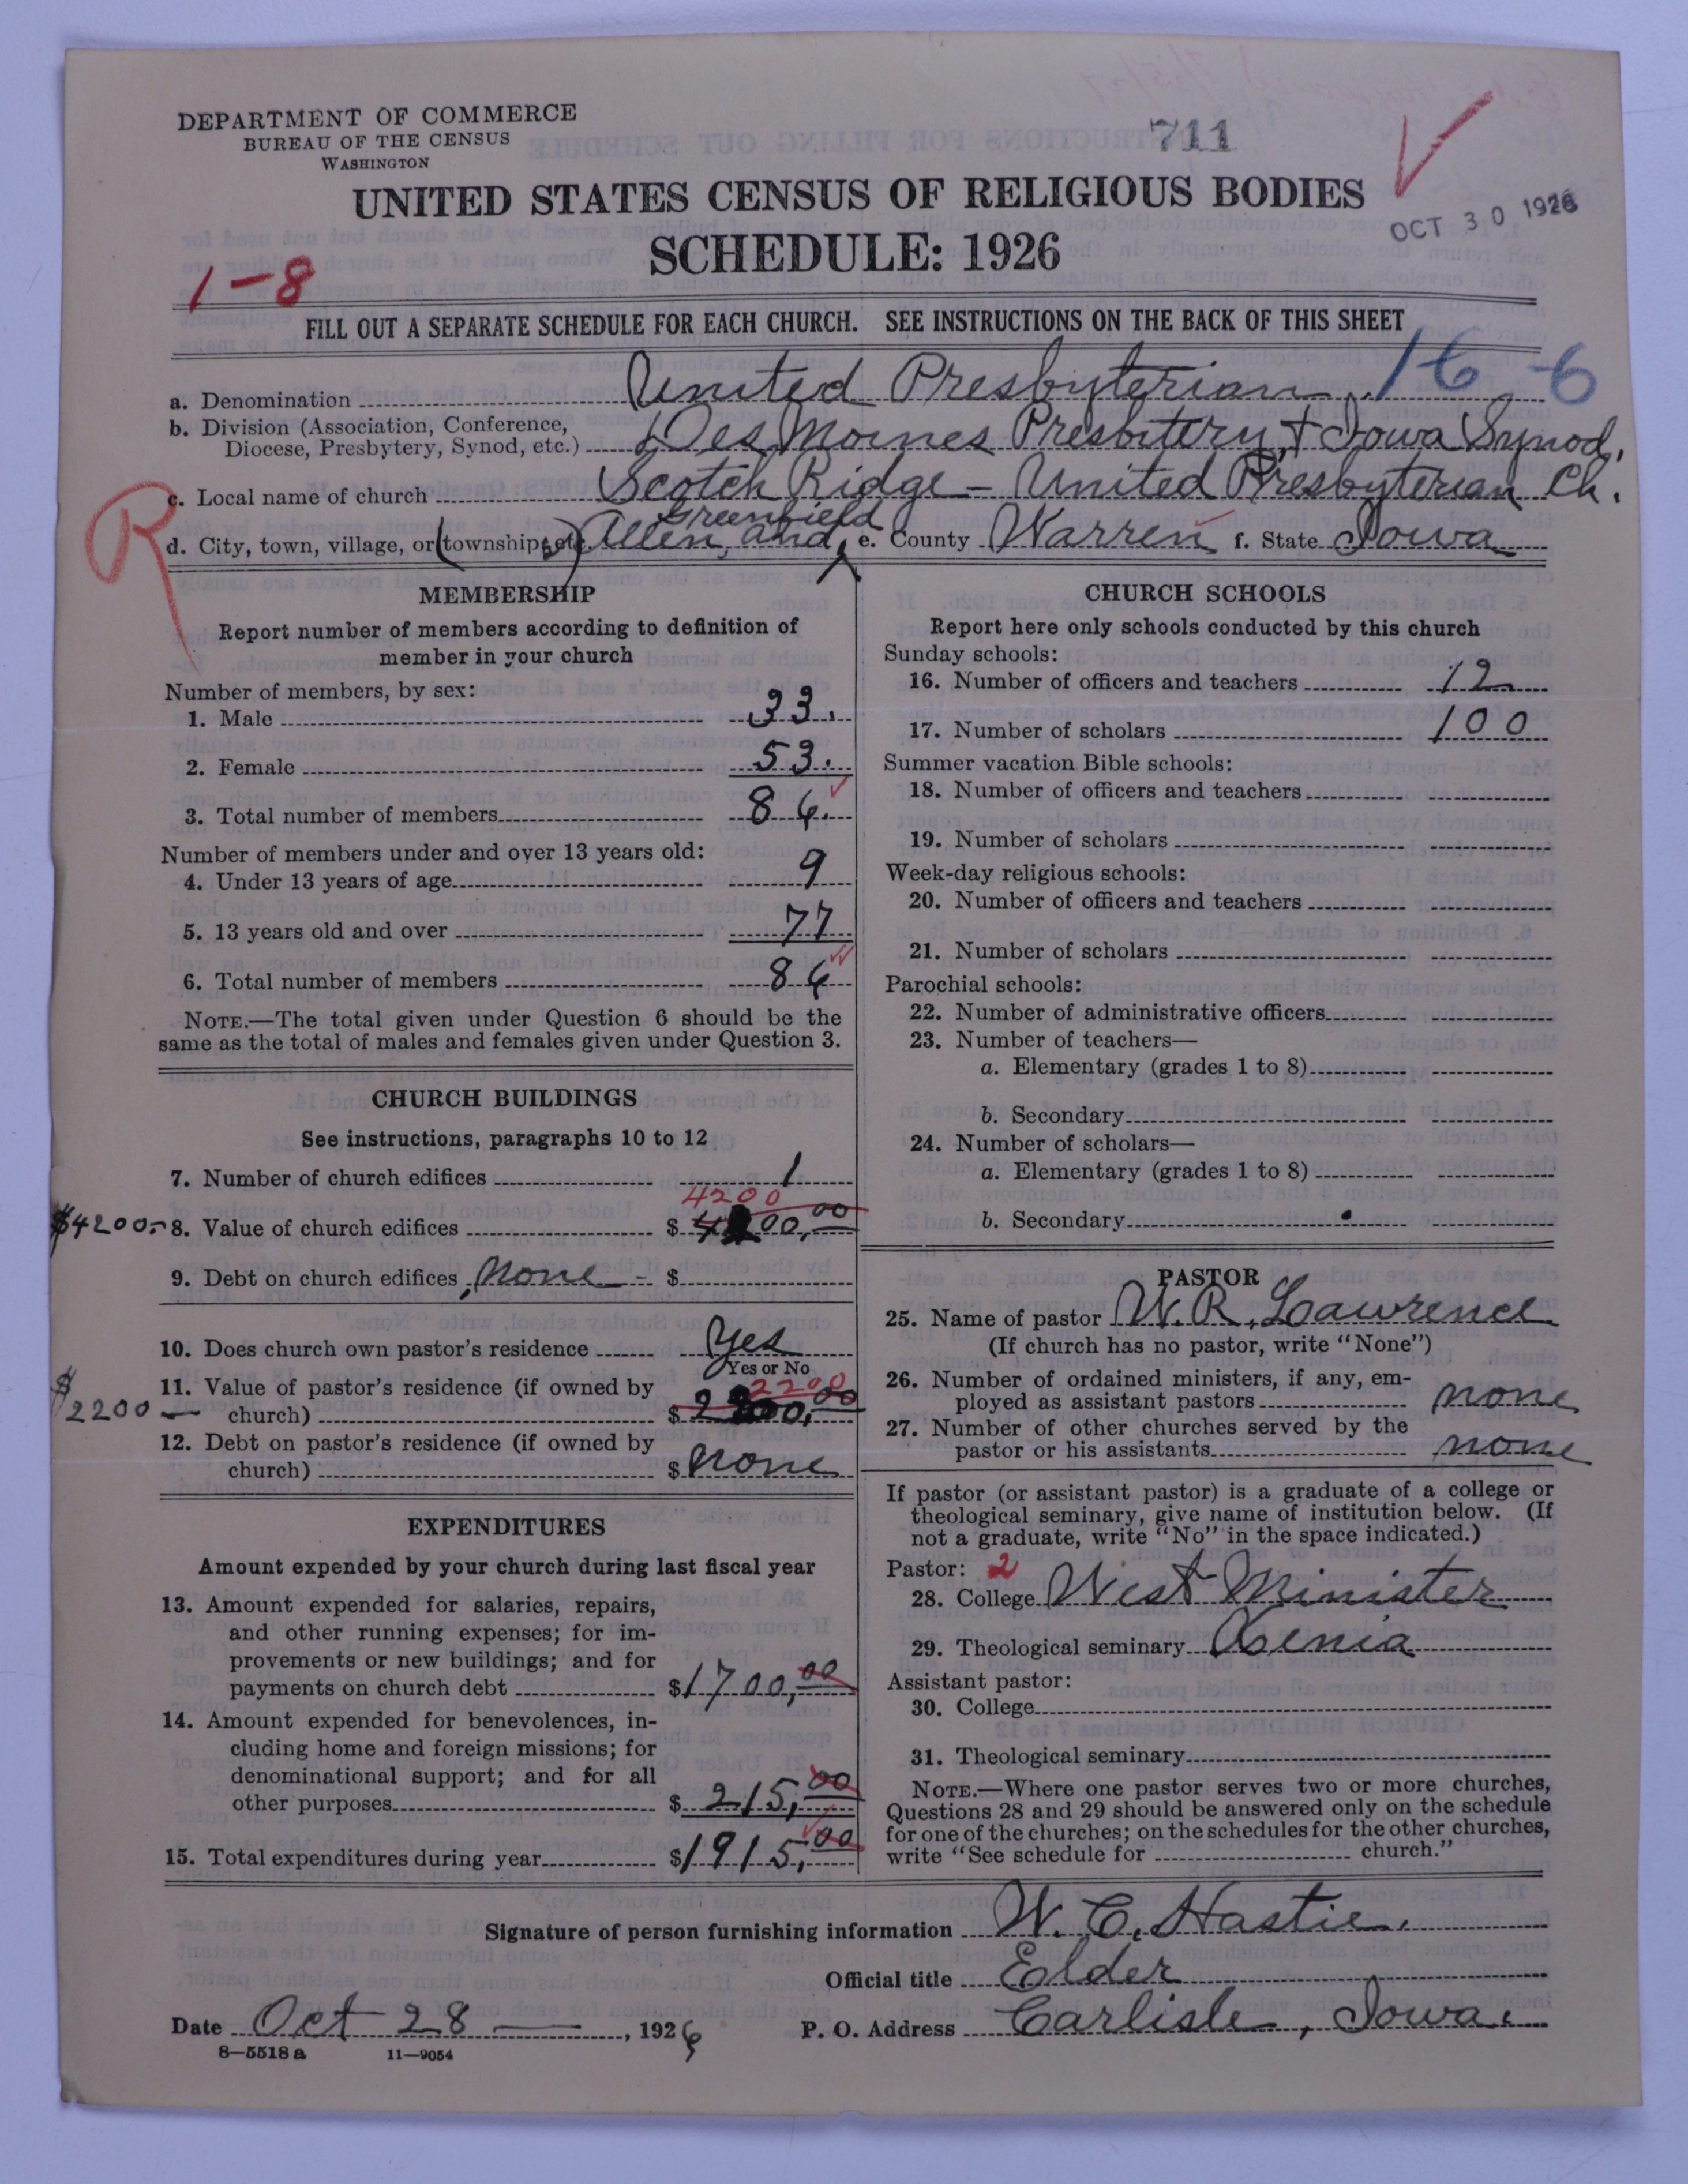 DEPARTMENT OF COMMERCE
BUREAU OF THE CENSUS
WASHINGTON
711
UNITED STATES CENSUS OF RELIGIOUS BODIES
SCHEDULE: 1926
OCT 30 1926
1-8
FILL OUT A SEPARATE SCHEDULE FOR EACH CHURCH. SEE INSTRUCTIONS ON THE BACK OF THIS SHEET
16-6
a. Denomination United Presbyterian
b. Division (Association, Conference, Diocese, Presbytery, Synod, etc.) Des Moines Presbitery, + Iowa Synod,
R
c. Local name of church Scotch Ridge - United Presbyterian Ch.
Greenfield
d. City, town, village, or (township, etc.) Allen, and e. County Warren f. State Iowa
MEMBERSHIP
Report number of members according to definition of
member in your church
Number of members, by sex:
1. Male 33.
2. Female 53.
3. Total number of members 86.
Number of members under and over 13 years old:
4. Under 13 years of age 9
5. 13 years old and over 77
6. Total number of members 86
NOTE.—The total given under Question 6 should be the
same as the total of males and females given under Question 3.
CHURCH BUILDINGS
See instructions, paragraphs 10 to 12
7. Number of church edifices 1
4200
$4200.- 8. Value of church edifices $ 4200,00
9. Debt on church edifices none - $
10. Does church own pastor's residence Yes
Yes or No
2200
$2200 — 11. Value of pastor's residence (if owned by
church) $ 2200,00
12. Debt on pastor's residence (if owned by
church) $ none
EXPENDITURES
Amount expended by your church during last fiscal year
13. Amount expended for salaries, repairs,
and other running expenses; for im-
provements or new buildings; and for
payments on church debt $1700,00
14. Amount expended for benevolences, in-
cluding home and foreign missions; for
denominational support; and for all
other purposes $ 215,00
15. Total expenditures during year $1915,00
CHURCH SCHOOLS
Report here only schools conducted by this church
Sunday schools:
16. Number of officers and teachers 12
17. Number of scholars 100
Summer vacation Bible schools:
18. Number of officers and teachers
19. Number of scholars
Week-day religious schools:
20. Number of officers and teachers
21. Number of scholars
Parochial schools:
22. Number of administrative officers
23. Number of teachers—
a. Elementary (grades 1 to 8)
b. Secondary
24. Number of scholars—
a. Elementary (grades 1 to 8)
b. Secondary
PASTOR
25. Name of pastor W. R. Lawrence
(If church has no pastor, write "None")
26. Number of ordained ministers, if any, em-
ployed as assistant pastors none
27. Number of other churches served by the
pastor or his assistants none
If pastor (or assistant pastor) is a graduate of a college or
theological seminary, give name of institution below. (If
not a graduate, write "No" in the space indicated.)
Pastor: 2
28. College West Minister
29. Theological seminary Xenia
Assistant pastor:
30. College
31. Theological seminary
NOTE.—Where one pastor serves two or more churches,
Questions 28 and 29 should be answered only on the schedule
for one of the churches; on the schedules for the other churches,
write "See schedule for church."
Signature of person furnishing information W. C. Hastie.
Official title Elder
Date Oct 28 —, 1926 P. O. Address Carlisle, Iowa.
8—5518 a 11—9054